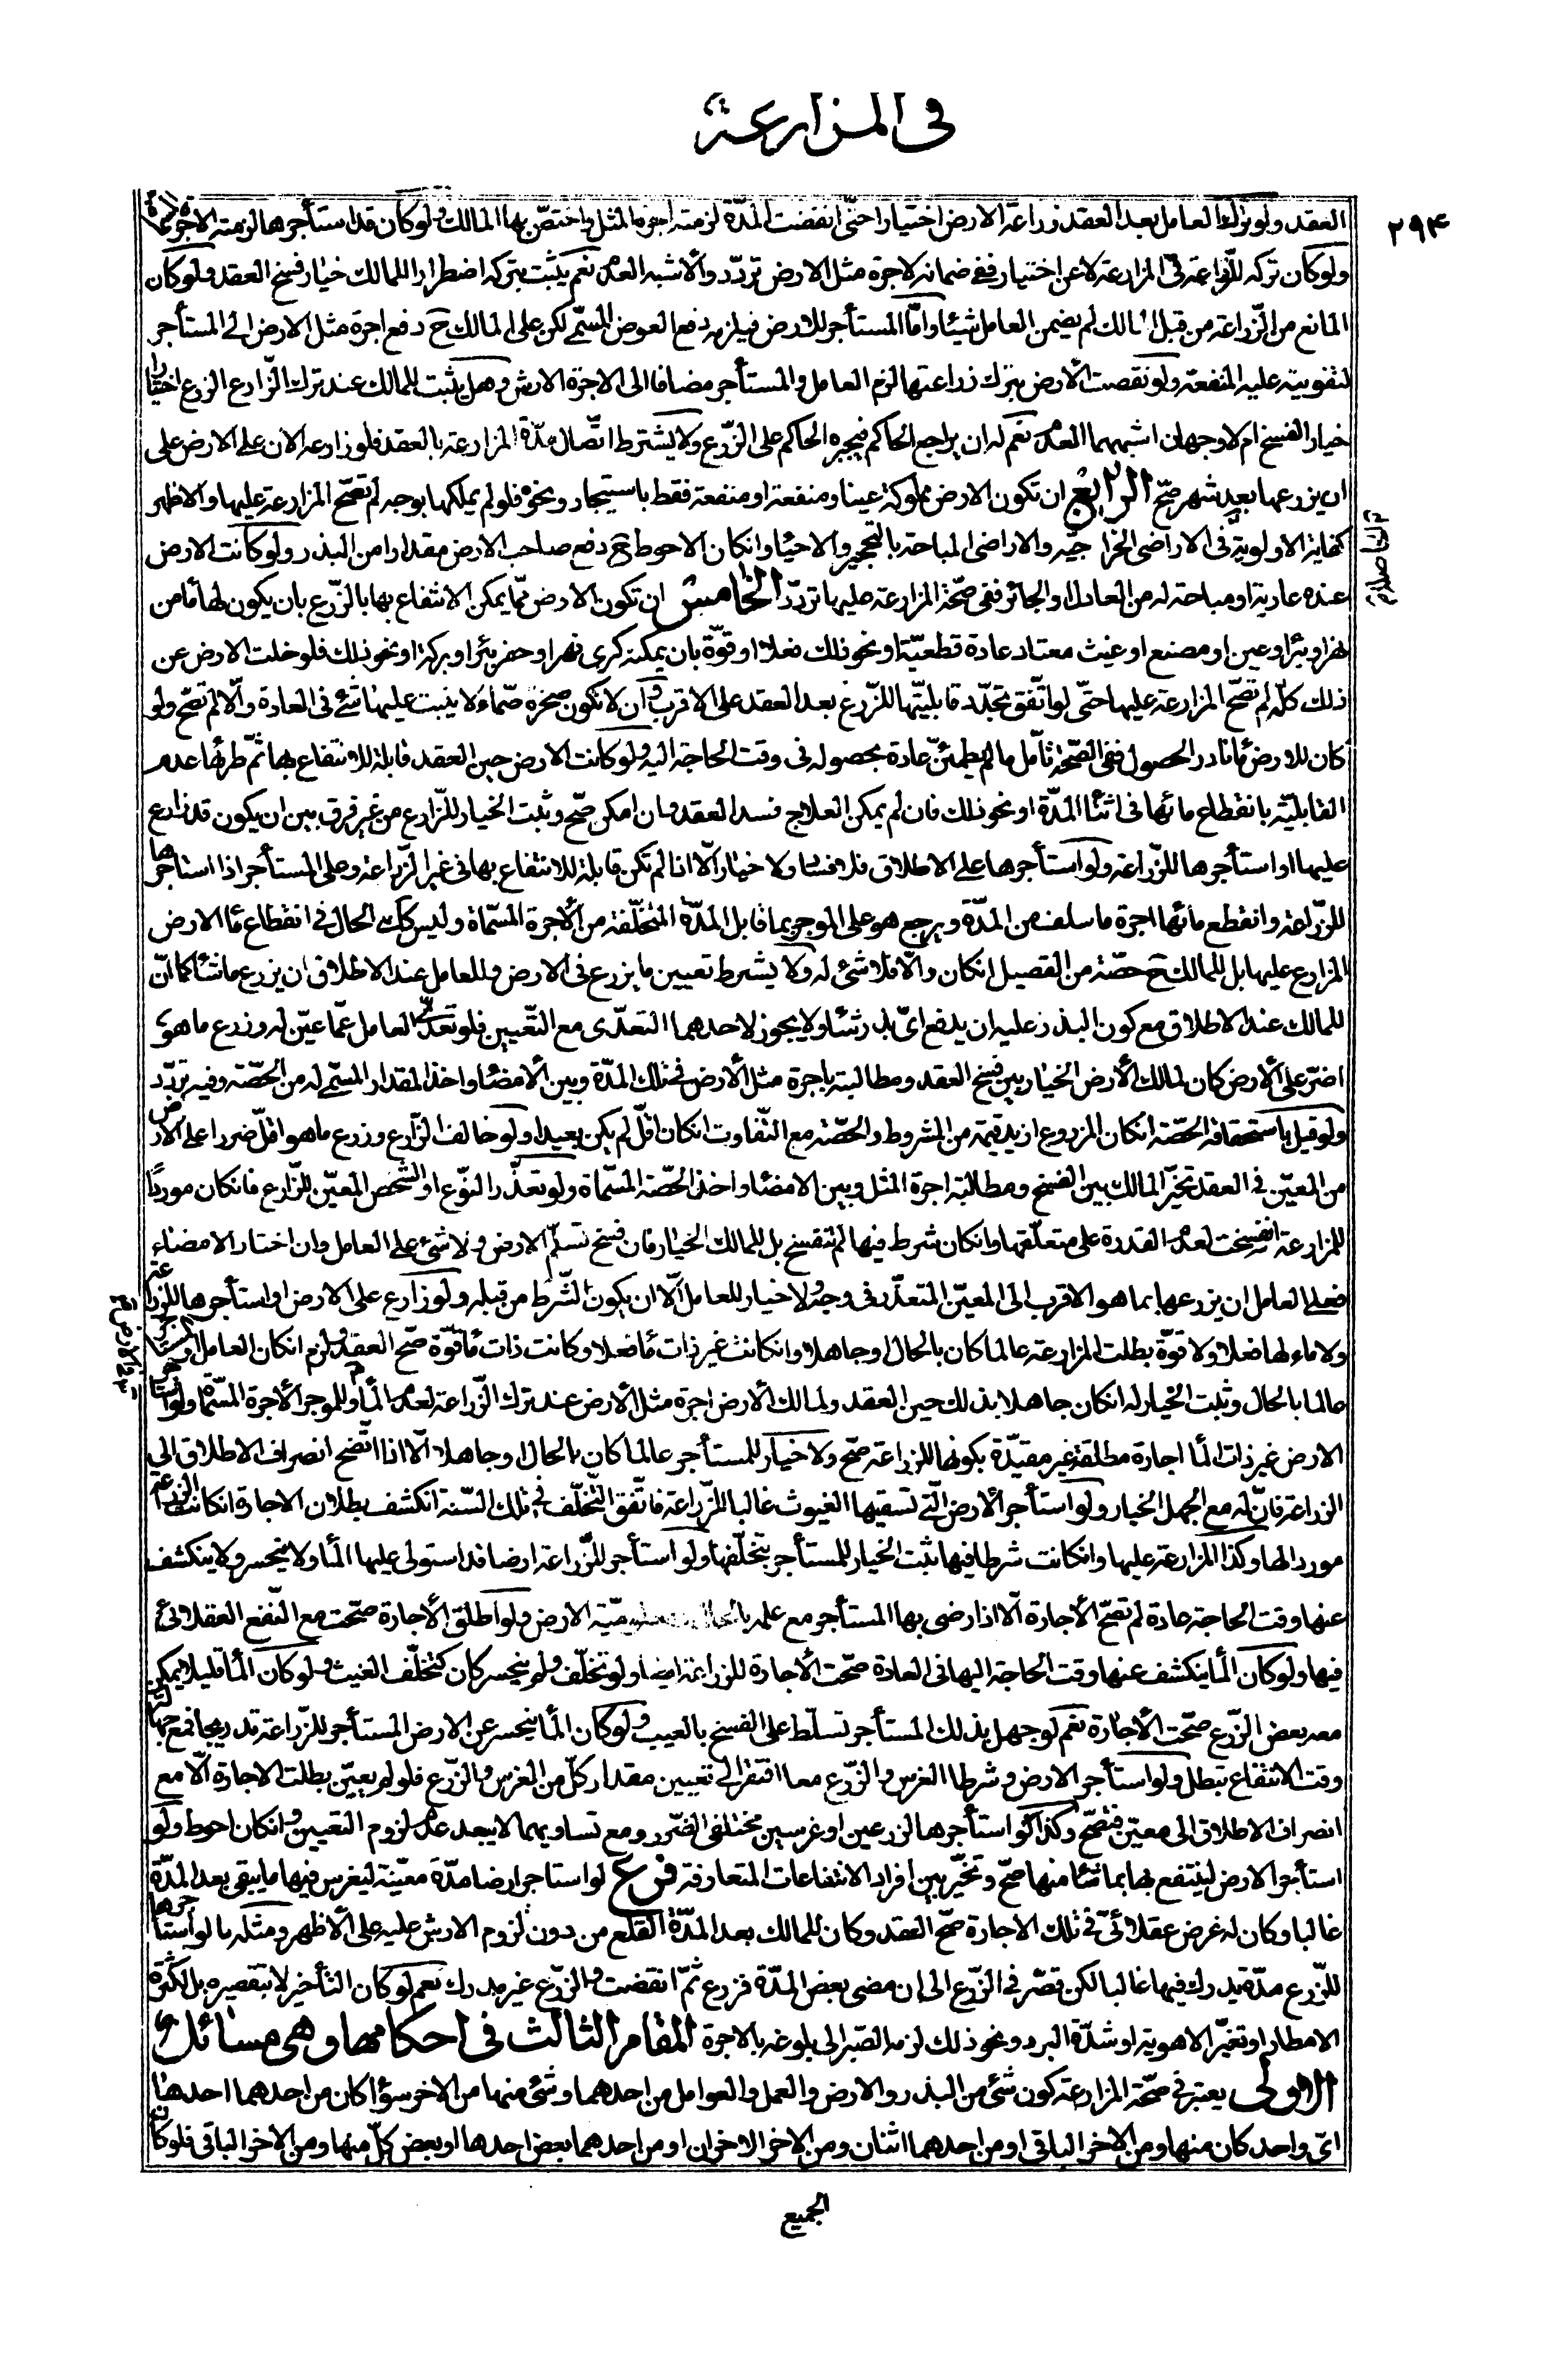 في المزارعة
٢٩۴
العقد ولو ترك العامل بعد العقد زراعة الارض اختيارا حتّى انقضت المدّة لزمته اجرة المثل واختصّ بها المالك ولو كان قد استأجرها لزمته الاجرة
ولو كان تركه للزّراعة في المزارعة لا عن اختيار ففي ضمانه لاجرة مثل الارض تردّد والاشبه العدم نعم يثبت بتركه اضطرارا للمالك خيار فسخ العقد ولو كان
المانع من الزّراعة من قبل المالك لم يضمن العامل شيئا وامّا المستأجر للارض فيلزمه دفع العوض المسمّى لكن على المالك ح دفع اجرة مثل الارض الى المستأجر
لتفويته عليه المنفعة ولو نقصت الأرض بترك زراعتها لزم العامل والمستأجر مضافا الى الاجرة الارش وهل يثبت للمالك عند ترك الزّارع الزرع اختيارا
خيار الفسخ ام لا وجهان اشبههما العدم نعم له ان يراجع الحاكم فيجبره الحاكم على الزّرع ولا يشترط اتّصال مدّة المزارعة بالعقد فلو زارعه الان على الارض على
ان يزرعها بعد شهر صحّ الرّابع ان تكون الارض مملوكة عينا ومنفعة او منفعة فقط باستيجار ونحوه فلو لم يملكها بوجه لم تصحّ المزارعة عليها والاظهر
كفاية الاولويّة في الاراضى الخراجيّه والاراضى المباحة بالتحجير والاحياء وانكان الاحوط ح دفع صاحب الارض مقدارا من البذر ولو كانت الارض
عنده عارية او مباحة له من العادل او الجائر ففى صحّة المزارعة عليها تردّد الخامس ان تكون الارض ممّا يمكن الانتفاع بها بالزّرع بان يكون لها ماء من
نهر او بئر او عين او مصنع او غيث معتاد عادة قطعيّة او نحو ذلك فعلا او قوّة بان يمكنه كرى نهر او حفر بئر او بركة او نحو ذلك فلو خلت الارض عن
ذلك كلّه لم تصحّ المزارعة عليها حتّى لو اتّفق تجدّد قابليّتها للزّرع بعد العقد على الاقرب وان لا تكون صخرة صمّاء لا ينبت عليها شئ في العادة والّا لم تصحّ ولو
كان للارض ماء نادر الحصول ففي الصّحّة تأمّل ما لم يطمئنّ عادة بحصوله في وقت الحاجة اليه ولو كانت الارض حين العقد قابلة للانتفاع بها ثمّ طرئها عدم
القابليّة بانقطاع مائها في اثناء المدّة او نحو ذلك فان لم يمكن العلاج فسد العقد وان امكن صحّ وثبت الخيار للزّارع من غير فرق بين ان يكون قد زارع
عليها او استأجرها للزّراعة ولو استأجرها على الاطلاق فلا فساد ولا خيار الّا اذا لم تكن قابلة للانتفاع بها في غير الزّراعة وعلى المستأجر اذا استأجرها
للزّراعة وانقطع مائها اجرة ما سلف من المدّة ويرجع هو على الموجر بما قابل المدّة المتخلّفة من الأجرة المسمّاة وليس كك الحال في انقطاع ماء الارض
المزارع عليها بل للمالك ح حصّته من القصيل انكان والّا فلا شئ له ولا يشترط تعيين ما يزرع في الارض وللعامل عند الاطلاق ان يزرع ما شاء كما انّ
للمالك عند الاطلاق مع كون البذر عليه ان يدفع اىّ بذر شاء ولا يجوز لاحدهما التعدّى مع التّعيين فلو تعدّى العامل عمّا عيّن له وزرع ما هو
اضرّ على الأرض كان لمالك الأرض الخيار بين فسخ العقد ومطالبته باجرة مثل الأرض في تلك المدّة وبين الأمضاء واخذ المقدار المسمّى له من الحصّة وفيه تردّد
ولو قيل باستحقاقه الحصّة انكان المزروع ازيد قيمة من المشروط والحصّة مع التّفاوت انكان اقلّ لم يكن بعيدا ولو خالف الزّارع وزرع ما هو اقلّ ضررا على الارض
من المعيّن في العقد تخيّر المالك بين الفسخ ومطالبة اجرة المثل وبين الامضاء واخذ الحصّة المسمّاة ولو تعذّر النّوع او الشّخص المعيّن للزّارع فانكان موردا
للمزارعة انفسخت لعدم القدرة على متعلّقها وانكان شرط فيها لم تنفسخ بل للمالك الخيار فان فسخ تسلّم الارض ولا شئ على العامل وان اختار الامضاء
فعلى العامل ان يزرعها بما هو الاقرب الى المعيّن المتعذّر في وجه ولا خيار للعامل الّا ان يكون الشّرط من قبله ولو زارع على الارض او استأجرها للزراعة
ولا ماء لها فعلا ولا قوّة بطلت المزارعة عالما كان بالحال او جاهلا وانكانت غير ذات ماء فعلا وكانت ذات ماء قوّة صحّ العقد ولزم انكان العامل او المستأجر
عالما بالحال وثبت الخيار له انكان جاهلا بذلك حين العقد ولمالك الأرض اجرة مثل الأرض عند ترك الزّراعة لعدم الماء وللموجر الأجرة المسمّاة ولو استأجر
الارض غير ذات الماء اجارة مطلقة غير مقيّدة بكونها للزراعة صحّ ولا خيار للمستأجر عالما كان بالحال او جاهلا الّا اذا اتّضح انصراف الاطلاق الى
الزراعة فانّ له مع الجهل الخيار ولو استأجر الأرض الّتي تسقيها الغيوث غالبا للزّراعة فاتّفق التّخلّف في تلك السّنة انكشف بطلان الاجارة انكانت الزراعة
موردا لها وكذا المزارعة عليها وانكانت شرطا فيها ثبت الخيار للمستأجر بتخلّفها ولو استأجر للزّراعة ارضا قد استولى عليها الماء ولا ينحسر ولا ينكشف
عنها وقت الحاجة عادة لم تصحّ الأجارة الّا اذا رضى بها المستأجر مع علمه الارض ولو اطلق الأجارة صحّت مع النّفع العقلائى
فيها ولو كان الماء ينكشف عنها وقت الحاجة اليها في العادة صحّت الأجارة للزراعة ايضا ولو تخلّف ولم ينحسر كان كتخلّف الغيث ولو كان الماء قليلا يمكن
معه بعض الزّرع صحّت الأجارة نعم لو جهل بذلك المستأجر تسلّط على الفسخ بالعيب ولو كان الماء ينحسر عن الارض المستأجر للزّراعة تدريجا فمع جهالة
وقت الانتفاع تبطل ولو استأجر الارض وشرطا الغرس والزّرع معا افتقر الى تعيين مقدار كلّ من الغرس والزّرع فلو لم يعيّن بطلت الاجارة الّا مع
انصراف الاطلاق الى معيّن فتصحّ وكذا لو استأجرها لزرعين او غرسين مختلفى الضّرر ومع تساويهما لا يبعد عدم لزوم التعيين وانكان احوط ولو
استأجر الارض لينتفع بها بما شاء منها صحّ وتخيّر بين افراد الانتفاعات المتعارفة فرع لو استاجر ارضا مدّة معيّنة ليغرس فيها ما يبقى بعد المدّة
غالبا وكان له غرض عقلائىّ في تلك الاجارة صحّ العقد وكان للمالك بعد المدّة القلع من دون لزوم الارش عليه على الأظهر ومثله ما لو استأجرها
للزّرع مدّة يدرك فيها غالبا لكن قصّر في الزّرع الى ان مضى بعض المدّة فزرع ثمّ انقضت والزّرع غير مدرك نعم لو كان التأخير لا بتقصيره بل لكثرة
الامطار او تغيّر الاهوية او شدّة البرد ونحو ذلك لزم الصّبر الى بلوغه بالاجرة المقام الثالث في احكامها وهى مسائل
الاولى يعتبر في صحّة المزارعة كون شئ من البذر والارض والعمل والعوامل من احدهما وشئ منها من الاخر سواء كان من احدهما احدها
اىّ واحد كان منها ومن الاخر الباقي او من احدهما اثنان ومن الاخر الاخران او من احدهما بعض احدها او بعض كلّ منها ومن الاخر الباقي فلو كان
الجميع